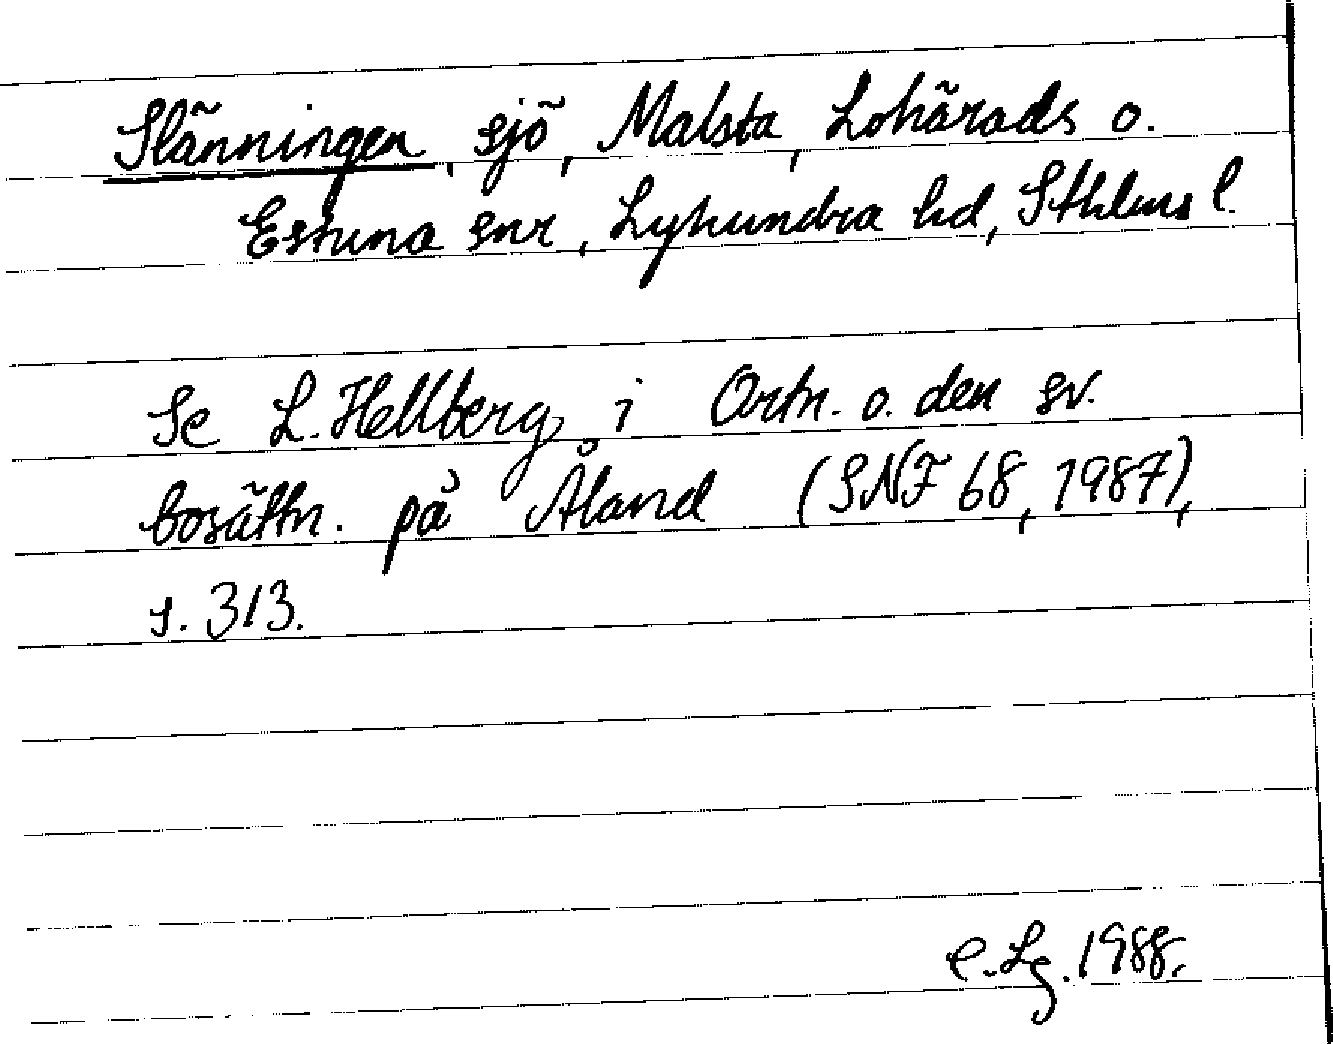 Slänningen, sjö, Malsta, Lohärads o.
Estuna snr, Lyhundra hd, Sthlms l.
Se L. Hellberg, i Ortn. o. den sv.
bosättn. på Åland (SNF 68, 1987),
s. 313.
e. Lg. 1988.